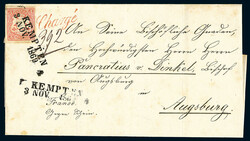 Chargé
KEMPTEN
3 NOV
1869
392
An Seine Bischöfliche Gnaden,
den Hochwürdigsten Herrn Herrn
Pancratius v. Dinkel, Bischof
von Augsburg
KEMPTEN
3 NOV
Franco.
Gegen Schein.
Augsburg.